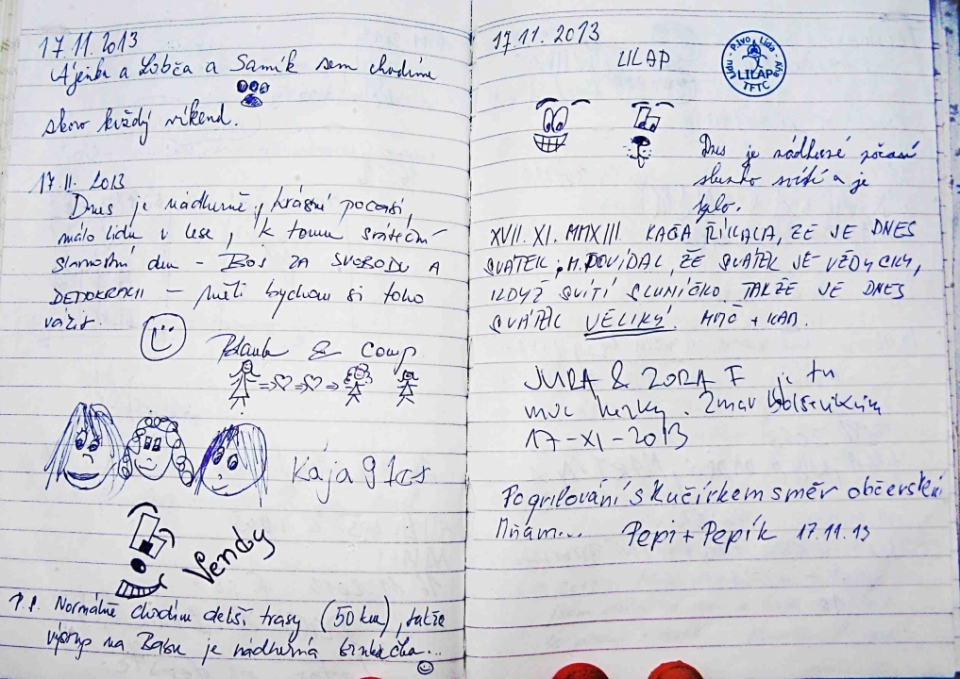 17.11.2013
Ájenka a Lobča a Samík sem chodíme
skoro každý víkend.
17.11. 2013
Dnes je nádherně, krásní počasí,
málo lidu v lese, k tomu sváteční
slavnostní den - BOJ ZA SVOBODU A
DEMOKRACII - měli bychom si toho
vážit.
& Comp.
Kája 9 let
Vendy
P.S. Normálně chodím delší trasy (50 km), takže
výstup na Babu je nádherná brnkačka...
17.11.2013
LILAP
P.Ivo Lída
LILAP
TFTC
Dnes je nádherné počasí
slunko svítí a je
teplo.
XVII. XI. MMXIII. KAČA ŘÍKALA, ŽE JE DNES
SVÁTEK, M. POVÍDAL, ŽE SVÁTEK JE VŽDYCKY,
KDYŽ SVÍTÍ SLUNÍČKO. TAKŽE JE DNES
SVÁTEK VELIKÝ.
JURA & ZORA F je tu
moc hezky. Zmar bolševikům
17-XI-2013
Pogrilování s Kučírkem směr občerstvení
Mňam... Pepi + Pepík 17.11.13